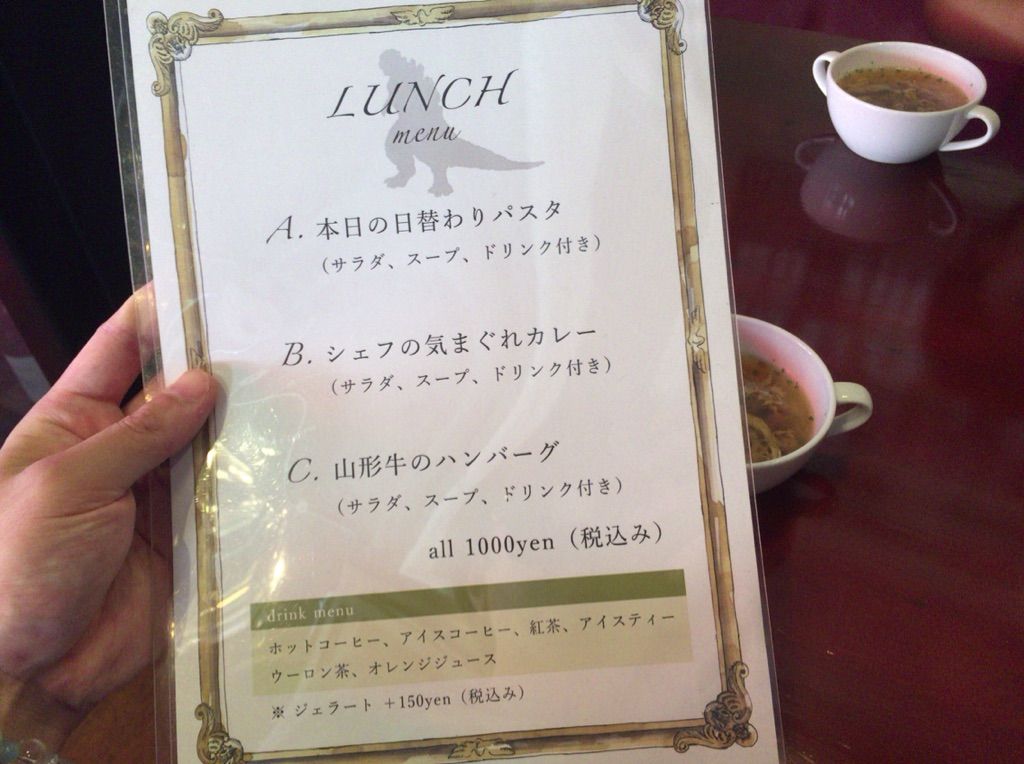 LUNCH
menu
A. 本日の日替わりパスタ
（サラダ、スープ、ドリンク付き）
B. シェフの気まぐれカレー
（サラダ、スープ、ドリンク付き）
C. 山形牛のハンバーグ
（サラダ、スープ、ドリンク付き）
all 1000yen（税込み）
drink menu
ホットコーヒー、アイスコーヒー、紅茶、アイスティー
ウーロン茶、オレンジジュース
※ ジェラート ＋150yen（税込み）